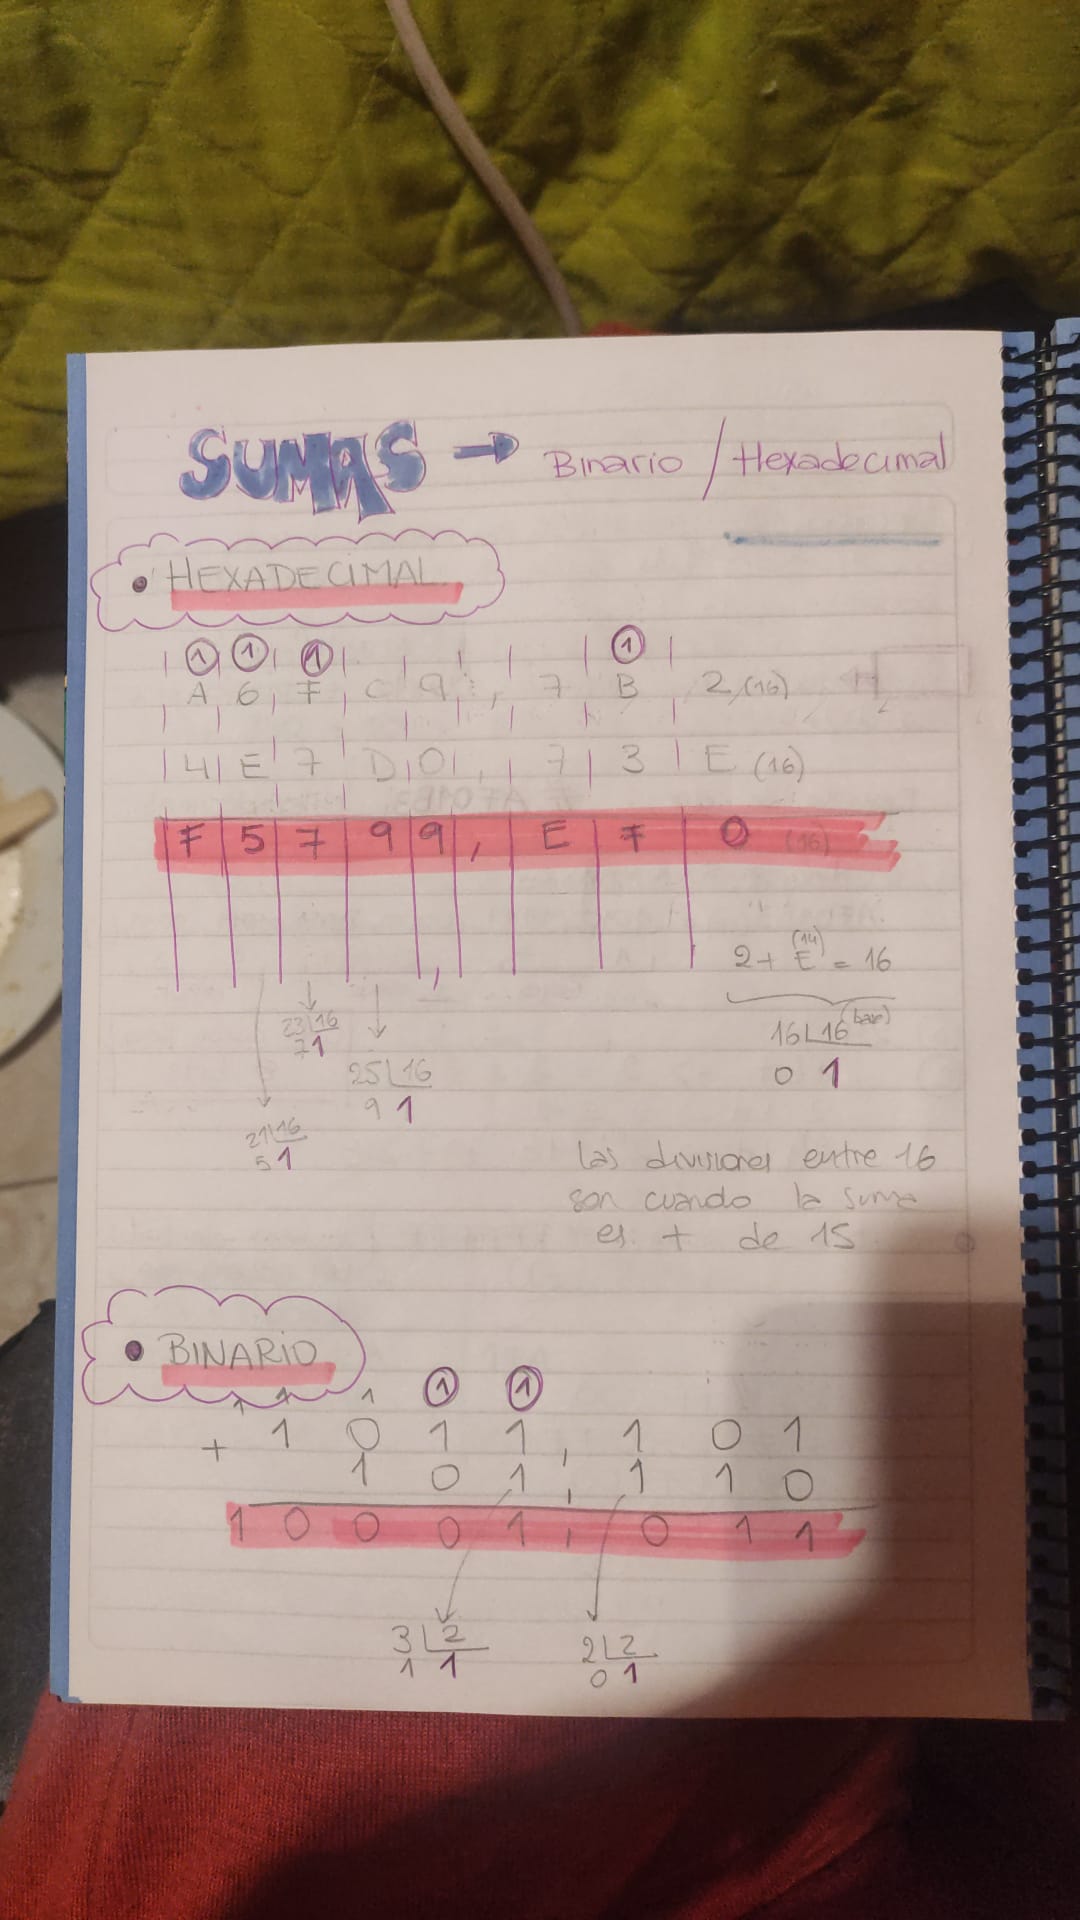 SUMAS → Binario / Hexadecimal
• HEXADECIMAL
1 1 1 1
A 6 F C 9 , 7 B 2 (16)
4 E 7 D 0 , 7 3 E (16)
F 5 7 9 9 , E F 0 (16)
2 + E (14) = 16
23 16
7 1
16 16 (base)
0 1
25 16
9 1
21 16
5 1
las divisiones entre 16
son cuando la suma
es + de 15
• BINARIO
1 1 1 1 1
+ 1 0 1 1 , 1 0 1
1 0 1 , 1 1 0
1 0 0 0 1 , 0 1 1
3 2
1 1
2 2
0 1